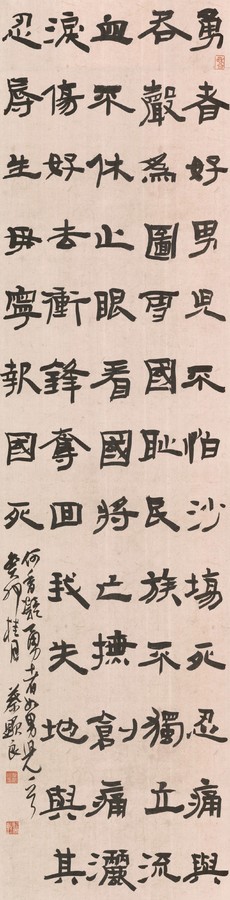 勇者好男兒不怕沙場死忍痛與
吞聲為圖雪國恥民族不獨立流
血不休止眼看國將亡撫創痛灑
淚傷好去衝鋒奪回我失地與其
忍辱生毋寧報國死
何香凝勇者好男兒一首
癸卯桂月 蔡顯良